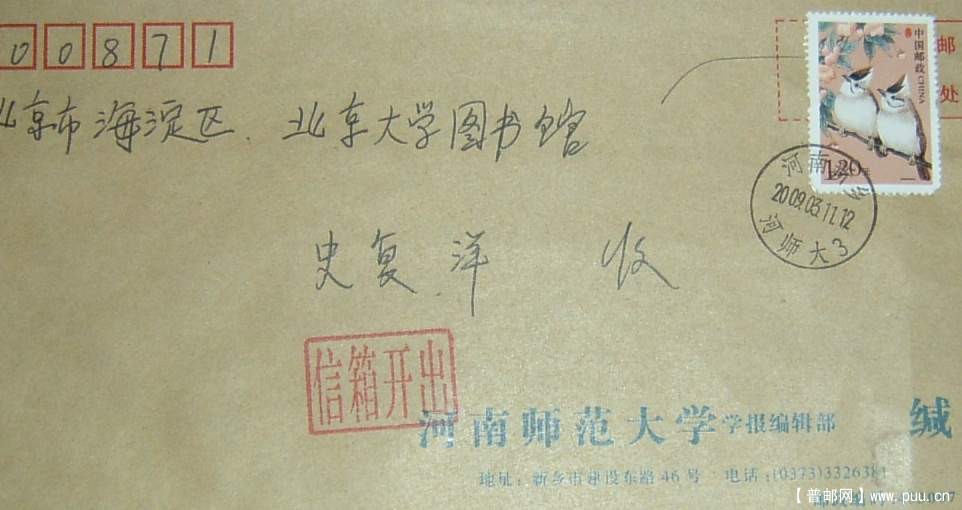 00871
邮
处
中国邮政 CHINA
1.20元
北京市海淀区. 北京大学图书馆
河南新乡
2009.03.11.12
河师大3
史复洋 收
信箱开出
河南师范大学学报编辑部 缄
地址: 新乡市建设东路46号 电话: (0373)3326381
【普邮网】www.puu.cn